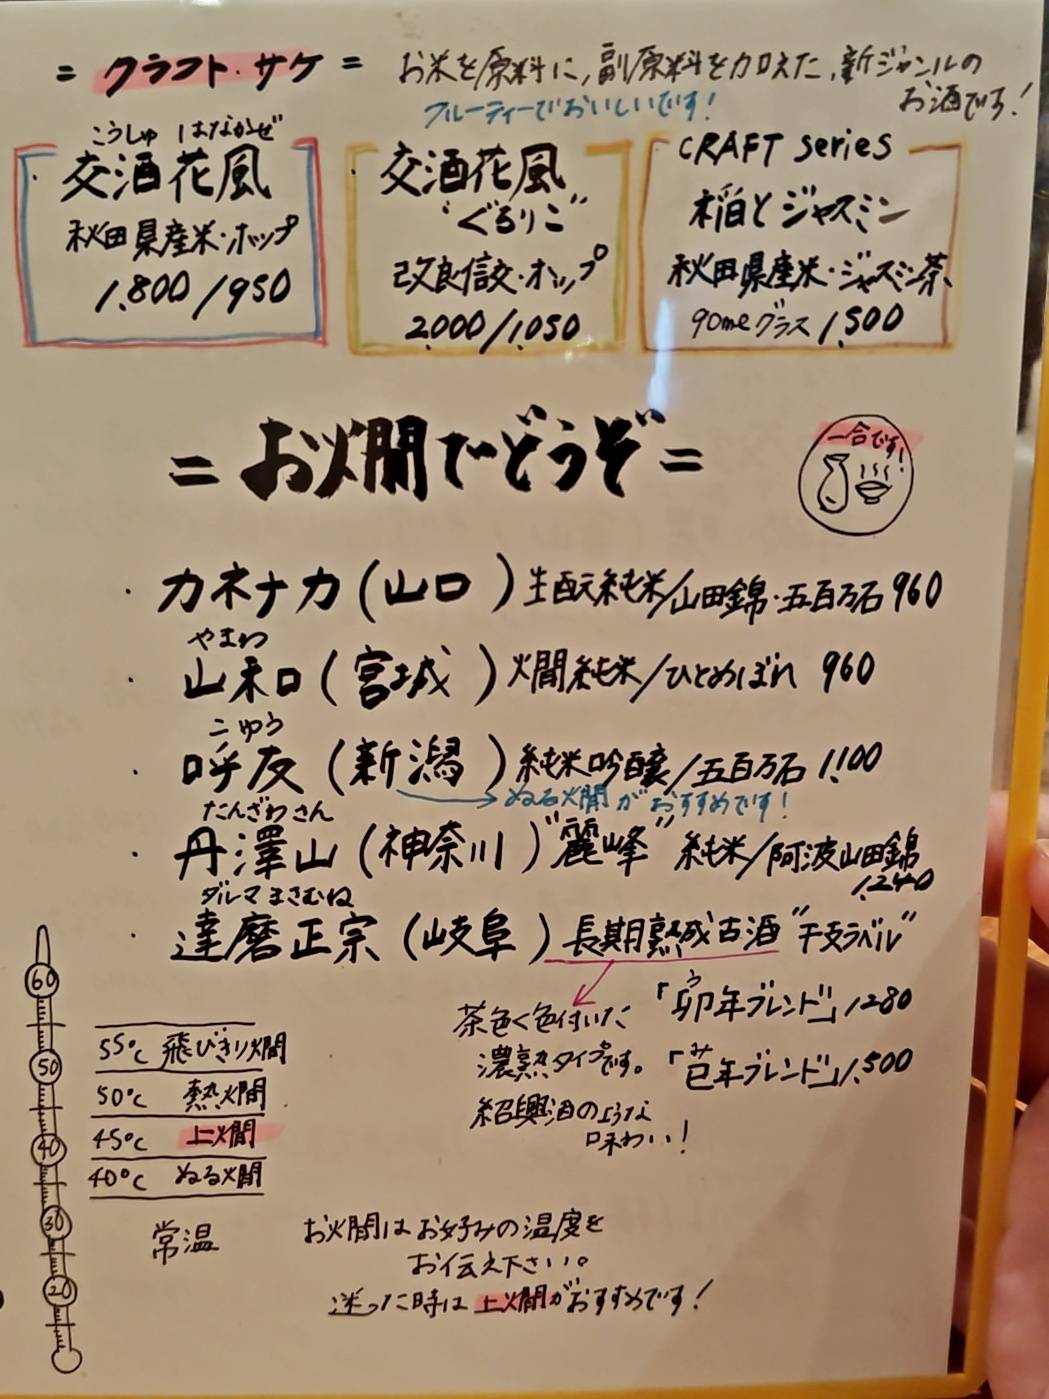 = クラフト・サケ =
お米を原料に、副原料を加えた、新ジャンルの
お酒です!
フルーティーでおいしいです!
こうしゅ はなかぜ
・交酒花風
秋田県産米・ホップ
1,800/950
・交酒花風
"ぐるりこ"
改良信交・ホップ
2,000/1,050
・CRAFT series
稲とジャスミン
秋田県産米・ジャスミン茶
90mlグラス 1,500
= お燗でどうぞ =
一合です!
・カネナカ(山口)生酛純米/山田錦・五百万石 960
やまわ
・山和(宮城)燗純米/ひとめぼれ 960
こゆう
・呼友(新潟)純米吟醸/五百万石 1,100
ぬる燗がおすすめです!
たんざわさん
・丹澤山(神奈川)"麗峰"純米/阿波山田錦
1,240
ダルマまさむね
・達磨正宗(岐阜)長期熟成古酒"干支ラベル"
う
「卯年ブレンド」1,280
み
「巳年ブレンド」1,500
茶色く色付いた
濃熟タイプです。
紹興酒のような
味わい!
60
50
40
30
20
55℃ 飛びきり燗
50℃ 熱燗
45℃ 上燗
40℃ ぬる燗
常温
お燗はお好みの温度を
お伝え下さい。
迷った時は上燗がおすすめです!